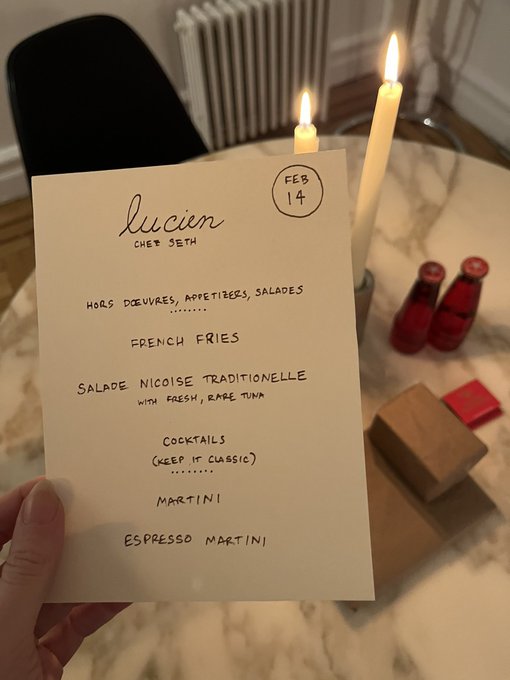 lucien
CHEZ SETH
FEB
14
HORS DŒUVRES, APPETIZERS, SALADES
FRENCH FRIES
SALADE NICOISE TRADITIONELLE
WITH FRESH, RARE TUNA
COCKTAILS
(KEEP IT CLASSIC)
MARTINI
ESPRESSO MARTINI